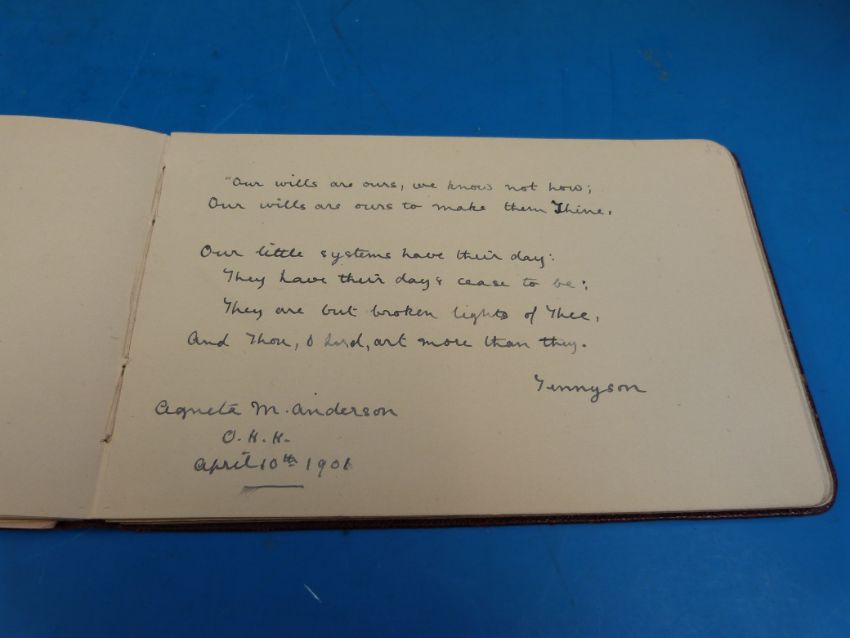 "Our wills are ours, we know not how;
Our wills are ours to make them Thine.
Our little systems have their day:
They have their day & cease to be:
They are but broken lights of Thee,
And Thou, O Lord, art more than they.
Tennyson
Agneta M. Anderson
O.H.H.
April 10th 1901